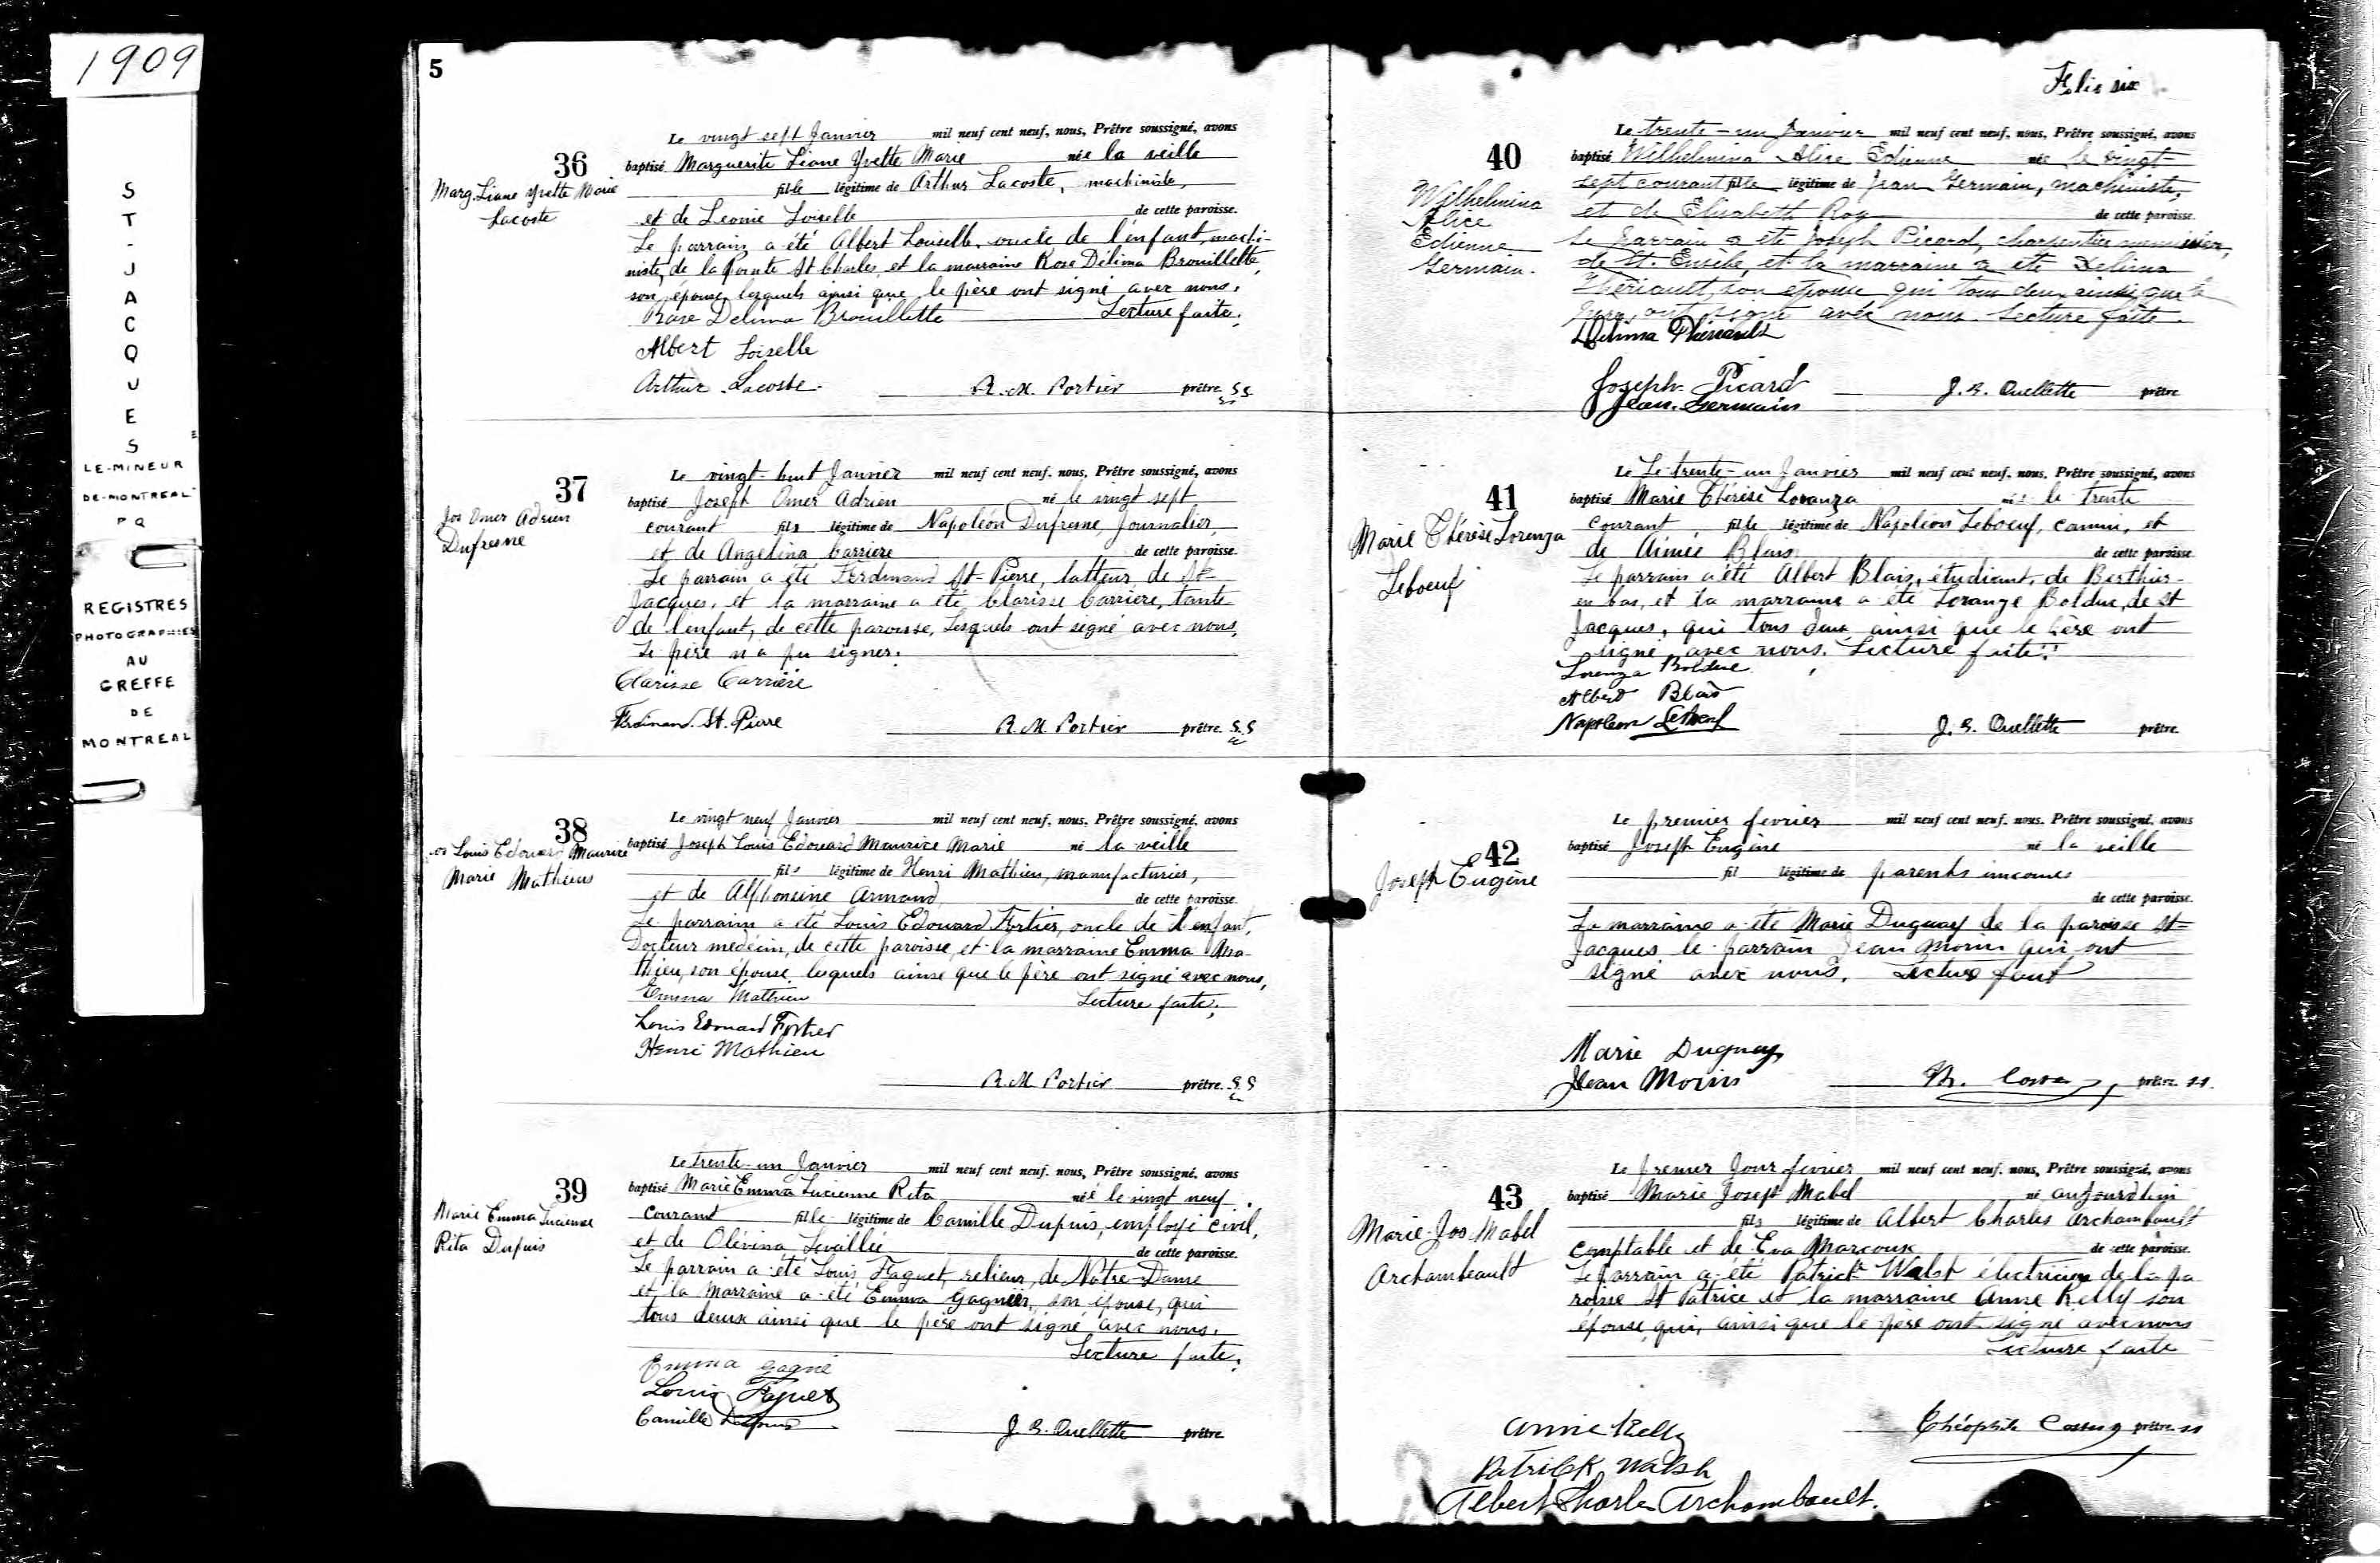 1909
ST-JACQUES
LE-MINEUR
DE-MONTREAL
P Q
REGISTRES
PHOTOGRAPHIES
AU
GREFFE
DE
MONTREAL
5
36
Marg. Liane Yvette Marie
Lacoste
Le vingt sept Janvier mil neuf cent neuf, nous, Prêtre soussigné, avons
baptisé Marguerite Liane Yvette Marie née la veille
fille légitime de Arthur Lacoste, machiniste,
et de Léonie Loiselle de cette paroisse.
Le parrain a été Albert Loiselle, oncle de l'enfant, machi-
niste, de la Pointe St Charles, et la marraine Rose Délima Brouillette,
son épouse, lesquels ainsi que le père ont signé avec nous.
Rose Delima Brouillette Lecture faite.
Albert Loiselle
Arthur Lacoste R. M. Portier prêtre S.S
37
Jos Omer Adrien
Dufresne
Le vingt-huit Janvier mil neuf cent neuf, nous, Prêtre soussigné, avons
baptisé Joseph Omer Adrien né le vingt sept
courant fils légitime de Napoléon Dufresne, Journalier,
et de Angelina Carriere de cette paroisse.
Le parrain a été Ferdinand St-Pierre, latteur, de St-
Jacques, et la marraine a été Clarisse Carriere, tante
de l'enfant, de cette paroisse, Lesquels ont signé avec nous,
Le père n'a pu signer.
Clarisse Carrière
Ferdinand St. Pierre R. M. Portier prêtre. S.S
38
Louis Edouard Maurice
Marie Mathieu
Le vingt neuf Janvier mil neuf cent neuf, nous, Prêtre soussigné, avons
baptisé Joseph Louis Edouard Maurice Marie né la veille
fils légitime de Henri Mathieu, manufacturier,
et de Alphonsine Armand de cette paroisse.
Le parrain a été Louis Edouard Fortier, oncle de l'enfant,
Docteur médecin, de cette paroisse, et la marraine Emma Ma-
thieu, son épouse, lesquels ainsi que le père ont signé avec nous,
Emma Mathieu Lecture faite.
Louis Edouard Fortier
Henri Mathieu
R. M. Portier prêtre. S.S
39
Marie Emma Lucienne
Rita Dupuis
Le trente-un Janvier mil neuf cent neuf, nous, Prêtre soussigné, avons
baptisé Marie Emma Lucienne Rita née le vingt neuf
courant fille légitime de Camille Dupuis, employé civil,
et de Olévina Levallée de cette paroisse.
Le parrain a été Louis Faguet, relieur, de Notre-Dame
et la marraine a été Emma Gagnier, son épouse, qui
tous deux ainsi que le père ont signé avec nous.
Lecture faite.
Emma Gagné
Louis Faguet
Camille Dupuis J. B. Ouellette prêtre
Folio six
40
Wilhelmina
Alice
Edienne
Germain.
Le trente-un Janvier mil neuf cent neuf, nous, Prêtre soussigné, avons
baptisé Wilhelmina Alice Edienne née le vingt-
sept courant fille légitime de Jean Germain, machiniste,
et de Elisabeth Roy de cette paroisse.
Le parrain a été Joseph Picard, charpentier menuisier,
de St. Eusèbe, et la marraine a été Delima
Thériault, son épouse qui tous deux ainsi que le
père, ont signé avec nous. Lecture faite.
Delima Theriault
Joseph Picard J. B. Ouellette prêtre
Jean Germain
41
Marie Thérèse Lorenza
Leboeuf
Le Le trente-un Janvier mil neuf cent neuf, nous, Prêtre soussigné, avons
baptisé Marie Thérèse Loranza née le trente
courant, fille légitime de Napoléon Leboeuf, commis, et
de Aimée Blais de cette paroisse.
Le parrain a été Albert Blais, étudiant, de Berthier-
en bas, et la marraine a été Lorange Bolduc, de St
Jacques, qui tous deux ainsi que le père ont
signé avec nous. Lecture faite.
Lorenza Bolduc
Albert Blais
Napoléon Leboeuf J. B. Ouellette prêtre.
42
Joseph Eugène
Le premier fevrier mil neuf cent neuf, nous, Prêtre soussigné, avons
baptisé Joseph Eugène né la veille
fil légitime de parents inconnus
de cette paroisse.
La marraine a été Marie Duguay de la paroisse St-
Jacques le parrain Jean Morin qui ont
signé avec nous. Lecture fait
Marie Duguay
Jean Morin Th. prêtre ss.
43
Marie-Jos Mabel
Archambeault
Le premier Jour fevrier mil neuf cent neuf, nous, Prêtre soussigné, avons
baptisé Marie Joseph Mabel né aujourd'hui
fils légitime de Albert Charles Archambault
comptable et de Eva Marcoux de cette paroisse.
Le parrain a été Patrick Walsh électricien de la pa
roisse St Patrice et la marraine Anne Kelly son
épouse qui, ainsi que le père ont signé avec nous
Lecture faite
Annie Kelly Théophile prêtre ss
Patrick Walsh
Albert Charles Archambault.